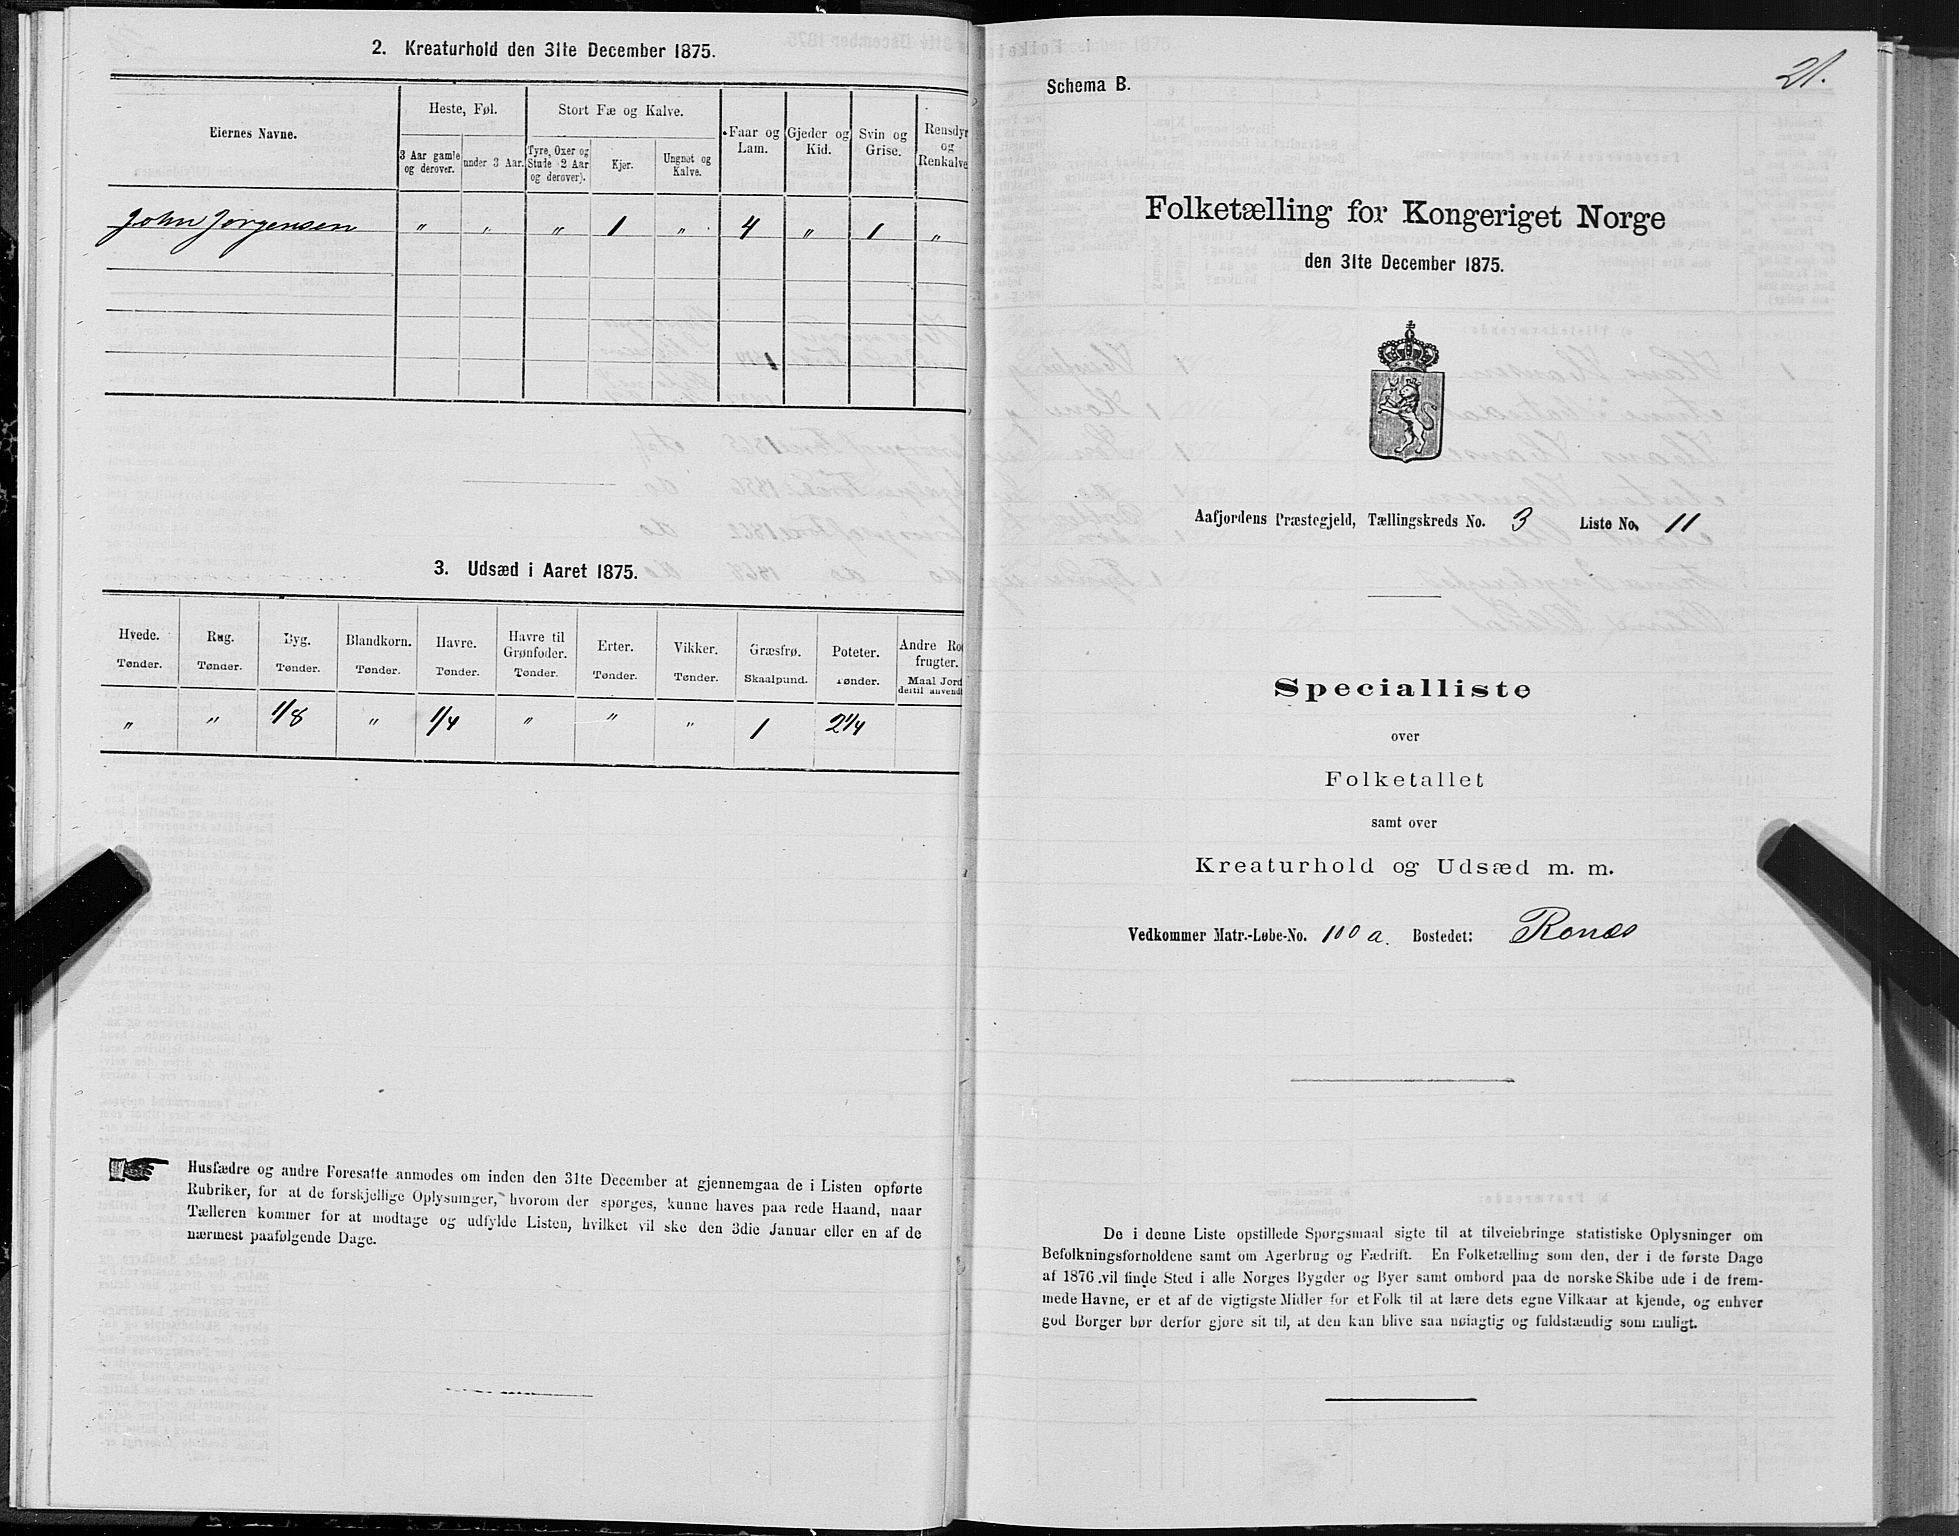 2. Kreaturhold den 31te December 1875.
Eiernes Navne.
Heste, Føl.
Stort Fæ og Kalve.
Faar og Lam.
Gjeder og Kid.
Svin og Grise.
Rensdyr og Renkalve
3 Aar gamle og derover.
under 3 Aar.
Tyre, Oxer og Stude 2 Aar og derover).
Kjer.
Ungnøt og Kalve.
John Jørgensen " " " 1 " 4 " 1 "
3. Udsæd i Aaret 1875.
Hvede. Rug. Byg. Blandkorn. Havre. Havre til Grønfoder. Erter. Vikker. Græsfrø. Poteter. Andre Ro frugter.
Tønder. Tønder. Tønder. Tønder. Tønder. Tønder. Tønder. Tønder. Skaalpund. Tønder. Maal Jord dertil anvendt
" " 1/8 " 1/4 " " " 1 2 1/4
Husfædre og andre Foresatte anmodes om inden den 31te December at gjennemgaa de i Listen opførte
Rubriker, for at de forskjellige Oplysninger, hvorom der spørges, kunne haves paa rede Haand, naar
Tælleren kommer for at modtage og udfylde Listen, hvilket vil ske den 3die Januar eller en af de
nærmest paafølgende Dage.
21.
Schema B.
Folketælling for Kongeriget Norge
den 31te December 1875.
Aafjordens Præstegjeld, Tællingskreds No. 3 Liste No. 11
Specialliste
over
Folketallet
samt over
Kreaturhold og Udsæd m. m.
Vedkommer Matr.-Løbe-No. 100 a. Bostedet: Ronæs
De i denne Liste opstillede Spørgsmaal sigte til at tilveiebringe statistiske Oplysninger om
Befolkningsforholdene samt om Agerbrug og Fædrift. En Folketælling som den, der i de første Dage
af 1876 vil finde Sted i alle Norges Bygder og Byer samt ombord paa de norske Skibe ude i de frem-
mede Havne, er et af de vigtigste Midler for et Folk til at lære dets egne Vilkaar at kjende, og enhver
god Borger bør derfor gjøre sit til, at den kan blive saa nøiagtig og fuldstændig som muligt.